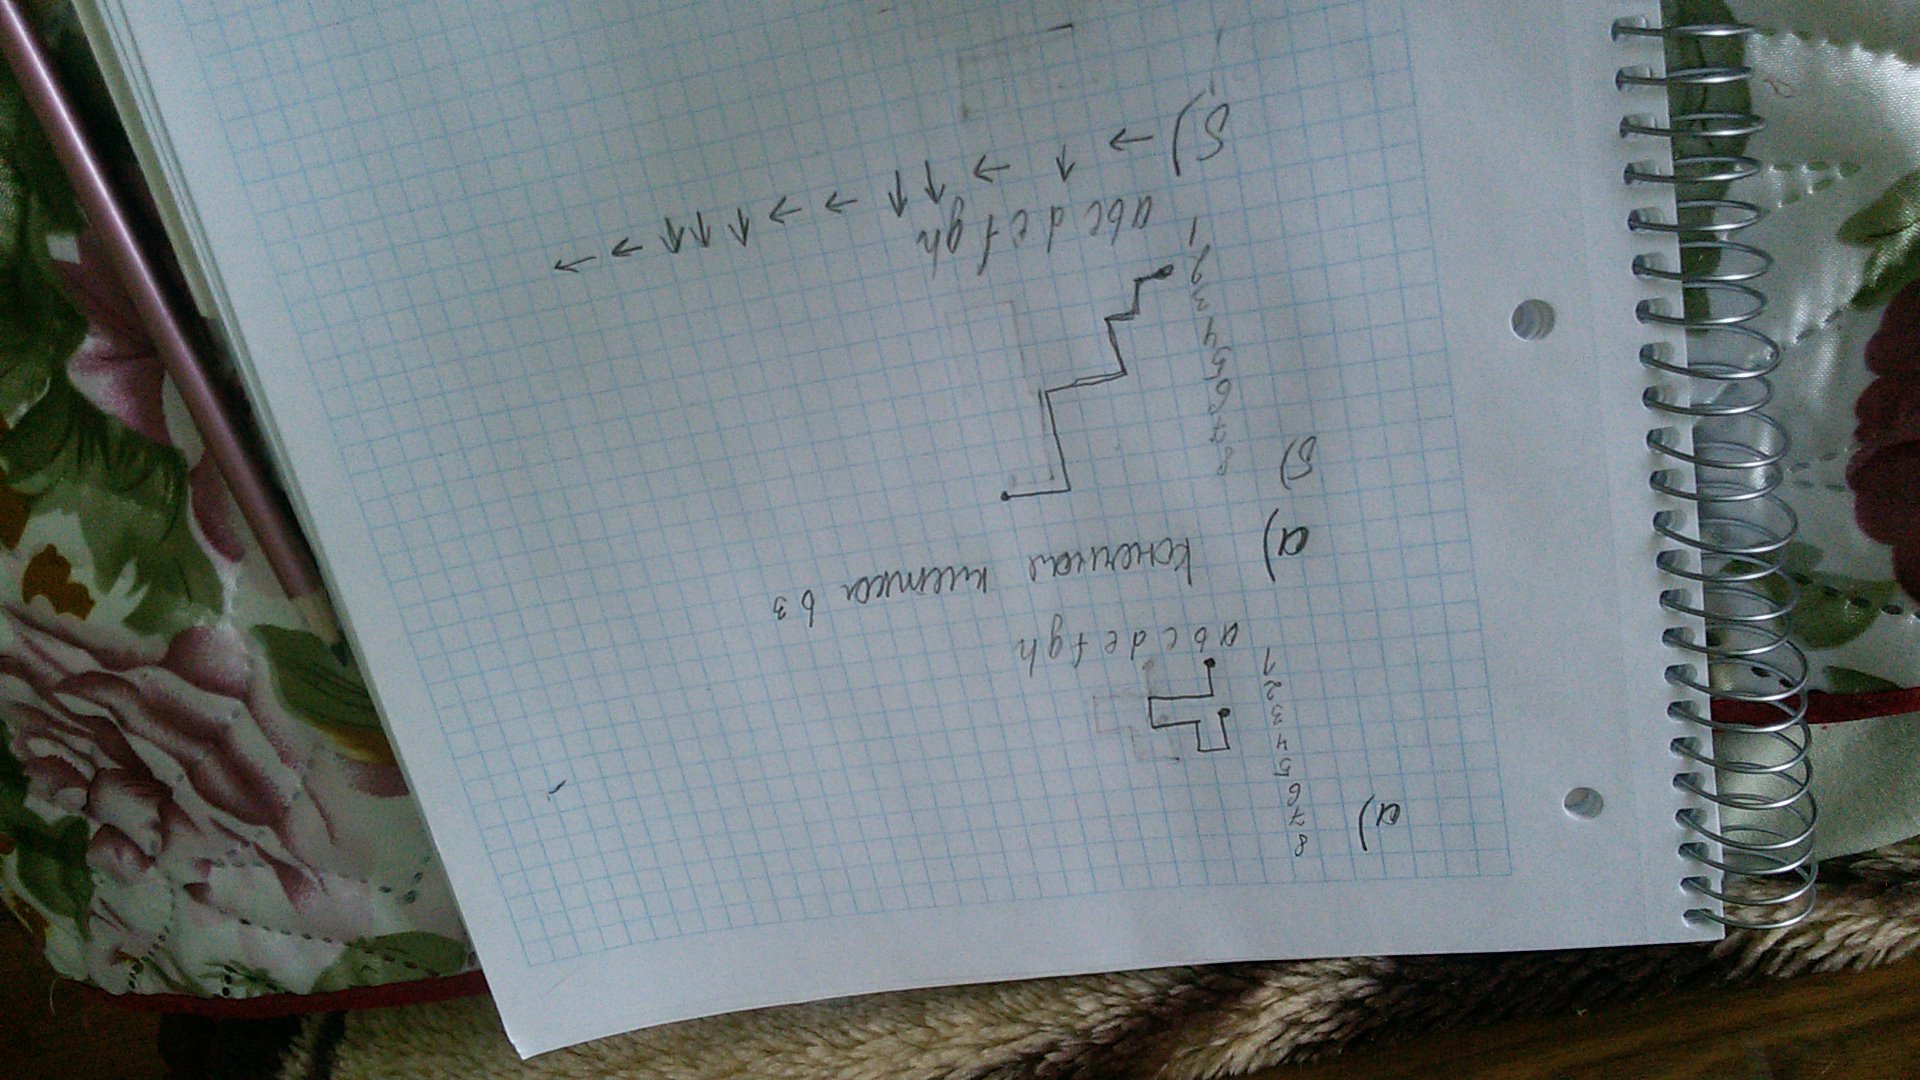 а)
8
7
6
5
4
3
2
1
a b c d e f g h
а) Конечная клетка b3
б)
8
7
6
5
4
3
2
1
a b c d e f g h
б) → ↑ → ↑ ↑ → → ↑ ↑ ↑ → →